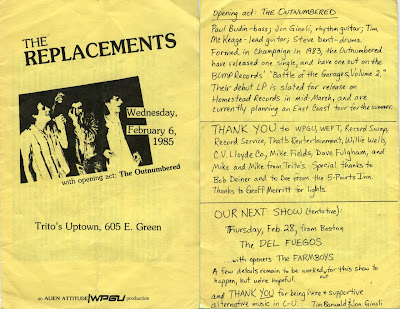 THE
REPLACEMENTS
Wednesday,
February 6,
1985
with opening act: The Outnumbered
Trito's Uptown, 605 E. Green
an ALIEN ATTITUDE/WPGU production
Opening act: THE OUTNUMBERED
Paul Budin-bass; Jon Ginoli, rhythm guitar; Tim
McKeage-lead guitar; Steve Dent-drums.
Formed in Champaign in 1983, the Outnumbered
have released one single, and have one cut on the
BOMP Records' "Battle of the Garages, Volume 2."
Their debut LP is slated for release on
Homestead Records in mid March, and are
currently planning an East Coast tour for the summer.
THANK YOU to WPGU, WEFT, Record Swap,
Record Service, That's Kentertainment, Willie Wells,
C.V. Lloyde Co., Mike Fields, Dave Fulgham, and
Mike and Mike from Trito's. Special thanks to
Bob Deiner and to Dee from the 5-Points Inn.
Thanks to Geoff Merritt for lights.
OUR NEXT SHOW (tentative):
Thursday, Feb. 28, from Boston
The DEL FUEGOS
with openers The FARMBOYS
A few details remain to be worked out for this show to
happen, but we're hopeful.
and THANK YOU for being here + supportive
alternative music in C-U. Tim Barwald + Jon Ginoli